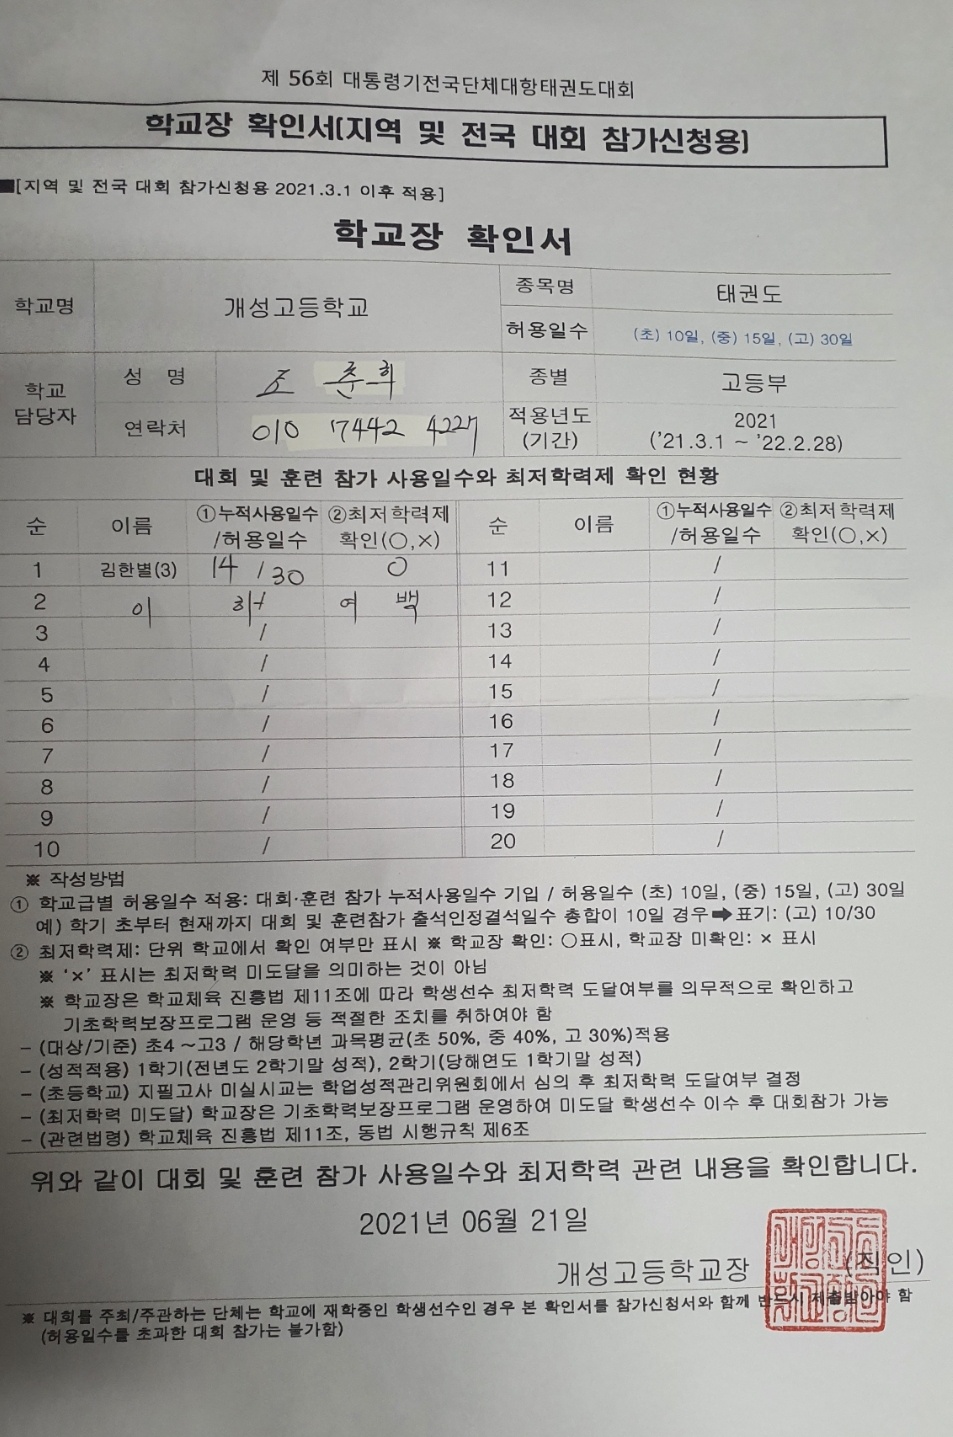 제 56회 대통령기전국단체대항태권도대회
학교장 확인서(지역 및 전국 대회 참가신청용)
■[지역 및 전국 대회 참가신청용 2021.3.1 이후 적용]
학교장 확인서
학교명 개성고등학교 종목명 태권도
허용일수 (초) 10일, (중) 15일, (고) 30일
학교 담당자 성 명 조 춘 희 종별 고등부
연락처 010 7442 4227 적용년도 (기간) 2021 ('21.3.1 ~ '22.2.28)
대회 및 훈련 참가 사용일수와 최저학력제 확인 현황
순 이름 ①누적사용일수 /허용일수 ②최저학력제 확인(○,×) 순 이름 ①누적사용일수 /허용일수 ②최저학력제 확인(○,×)
1 김한별(3) 14 / 30 ○ 11 /
2 이 하 / 여 백 12 /
3 / 13 /
4 / 14 /
5 / 15 /
6 / 16 /
7 / 17 /
8 / 18 /
9 / 19 /
10 / 20 /
※ 작성방법
① 학교급별 허용일수 적용: 대회·훈련 참가 누적사용일수 기입 / 허용일수 (초) 10일, (중) 15일, (고) 30일
예) 학기 초부터 현재까지 대회 및 훈련참가 출석인정결석일수 총합이 10일 경우➡표기: (고) 10/30
② 최저학력제: 단위 학교에서 확인 여부만 표시 ※ 학교장 확인: ○표시, 학교장 미확인: × 표시
※ '×' 표시는 최저학력 미도달을 의미하는 것이 아님
※ 학교장은 학교체육 진흥법 제11조에 따라 학생선수 최저학력 도달여부를 의무적으로 확인하고
기초학력보장프로그램 운영 등 적절한 조치를 취하여야 함
– (대상/기준) 초4 ~고3 / 해당학년 과목평균(초 50%, 중 40%, 고 30%)적용
– (성적적용) 1학기(전년도 2학기말 성적), 2학기(당해연도 1학기말 성적)
– (초등학교) 지필고사 미실시교는 학업성적관리위원회에서 심의 후 최저학력 도달여부 결정
– (최저학력 미도달) 학교장은 기초학력보장프로그램 운영하여 미도달 학생선수 이수 후 대회참가 가능
– (관련법령) 학교체육 진흥법 제11조, 동법 시행규칙 제6조
위와 같이 대회 및 훈련 참가 사용일수와 최저학력 관련 내용을 확인합니다.
2021년 06월 21일
개성고등학교장 (직인)
※ 대회를 주최/주관하는 단체는 학교에 재학중인 학생선수인 경우 본 확인서를 참가신청서와 함께 반드시 제출받아야 함
(허용일수를 초과한 대회 참가는 불가함)